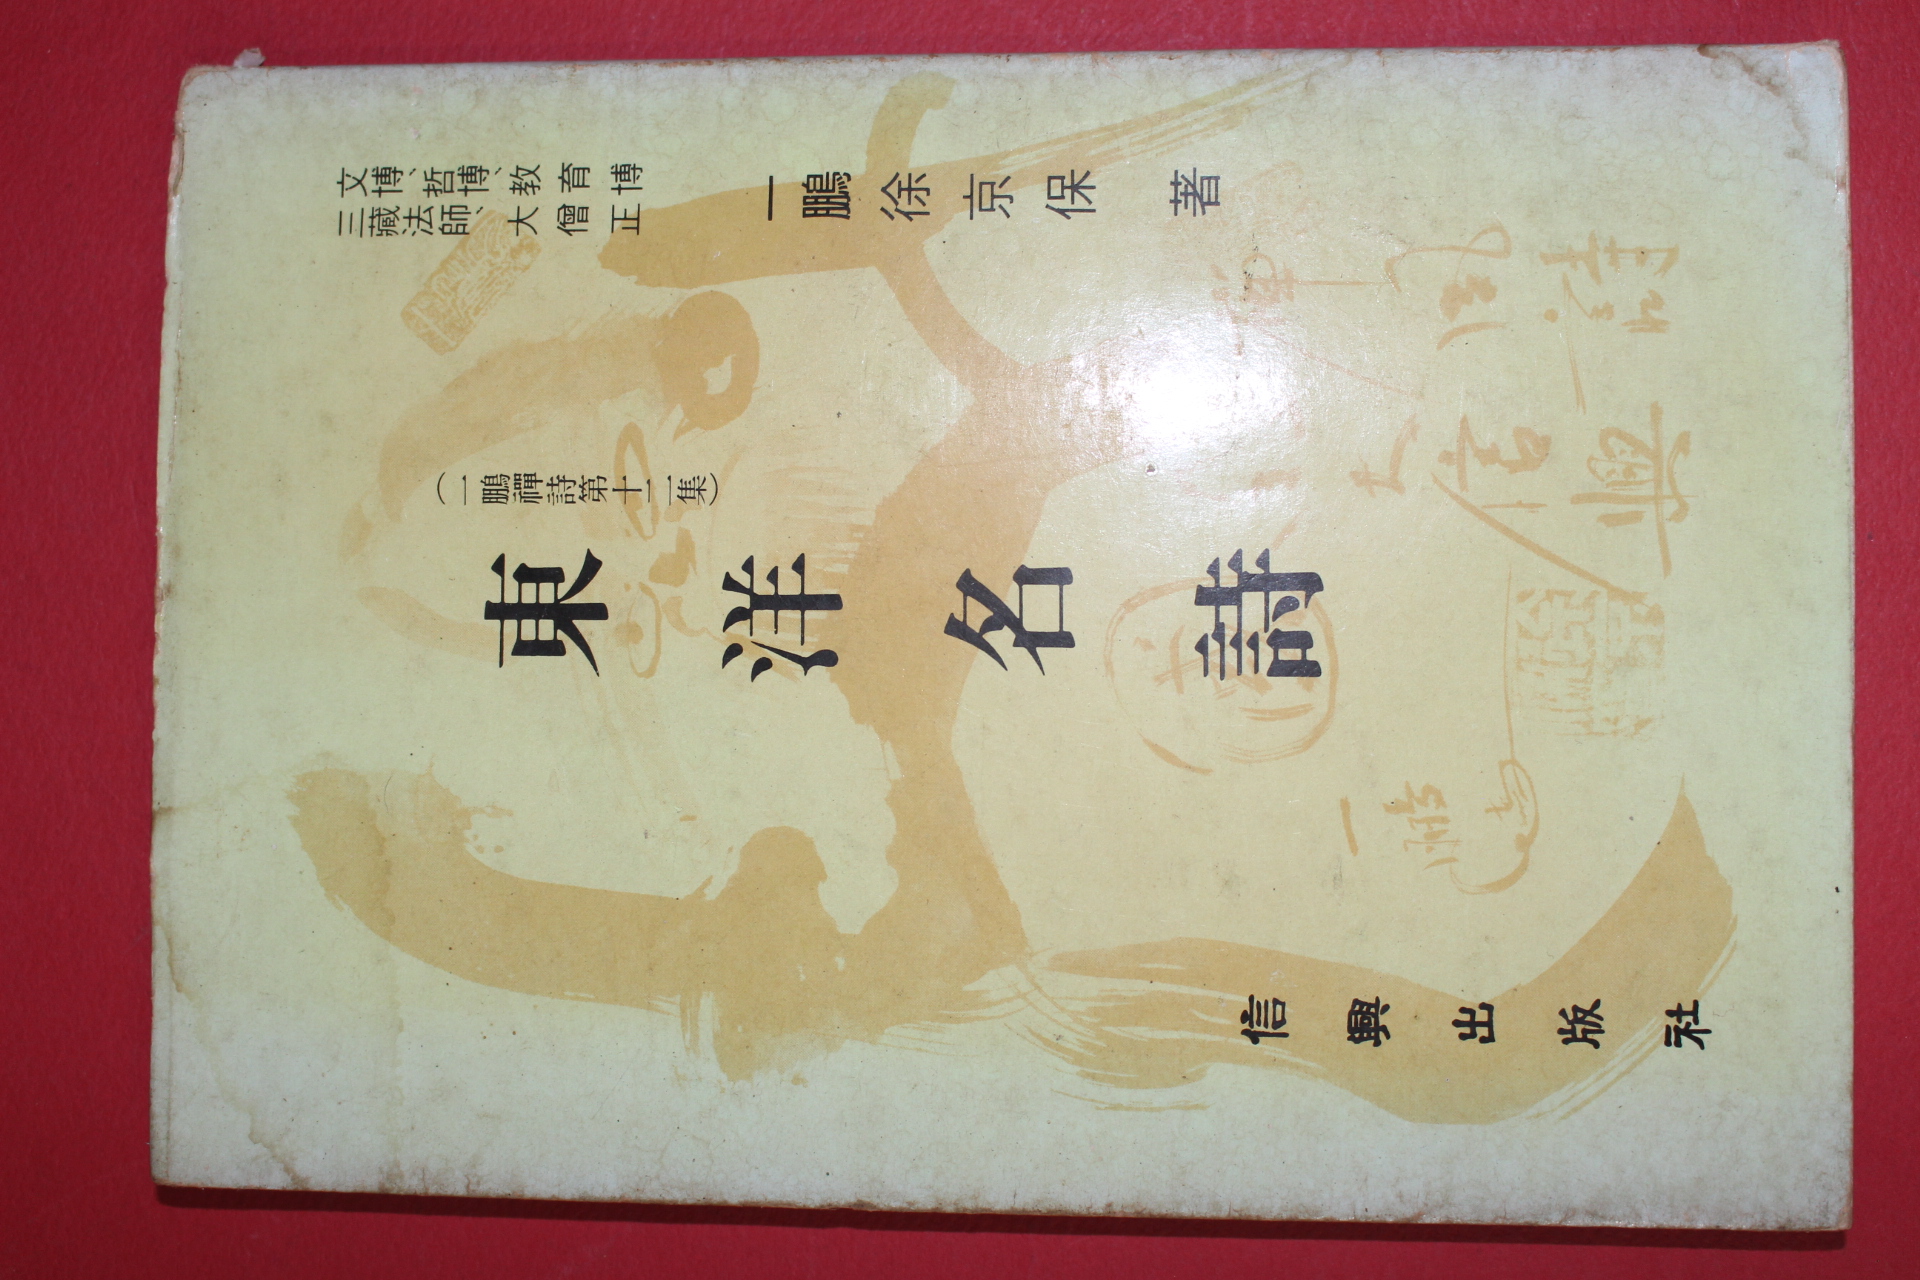 文博、哲博、教育博
三藏法師、大僧正
一鵬 徐京保 著
(一鵬禪詩第十二集)
東洋名詩
信興出版社